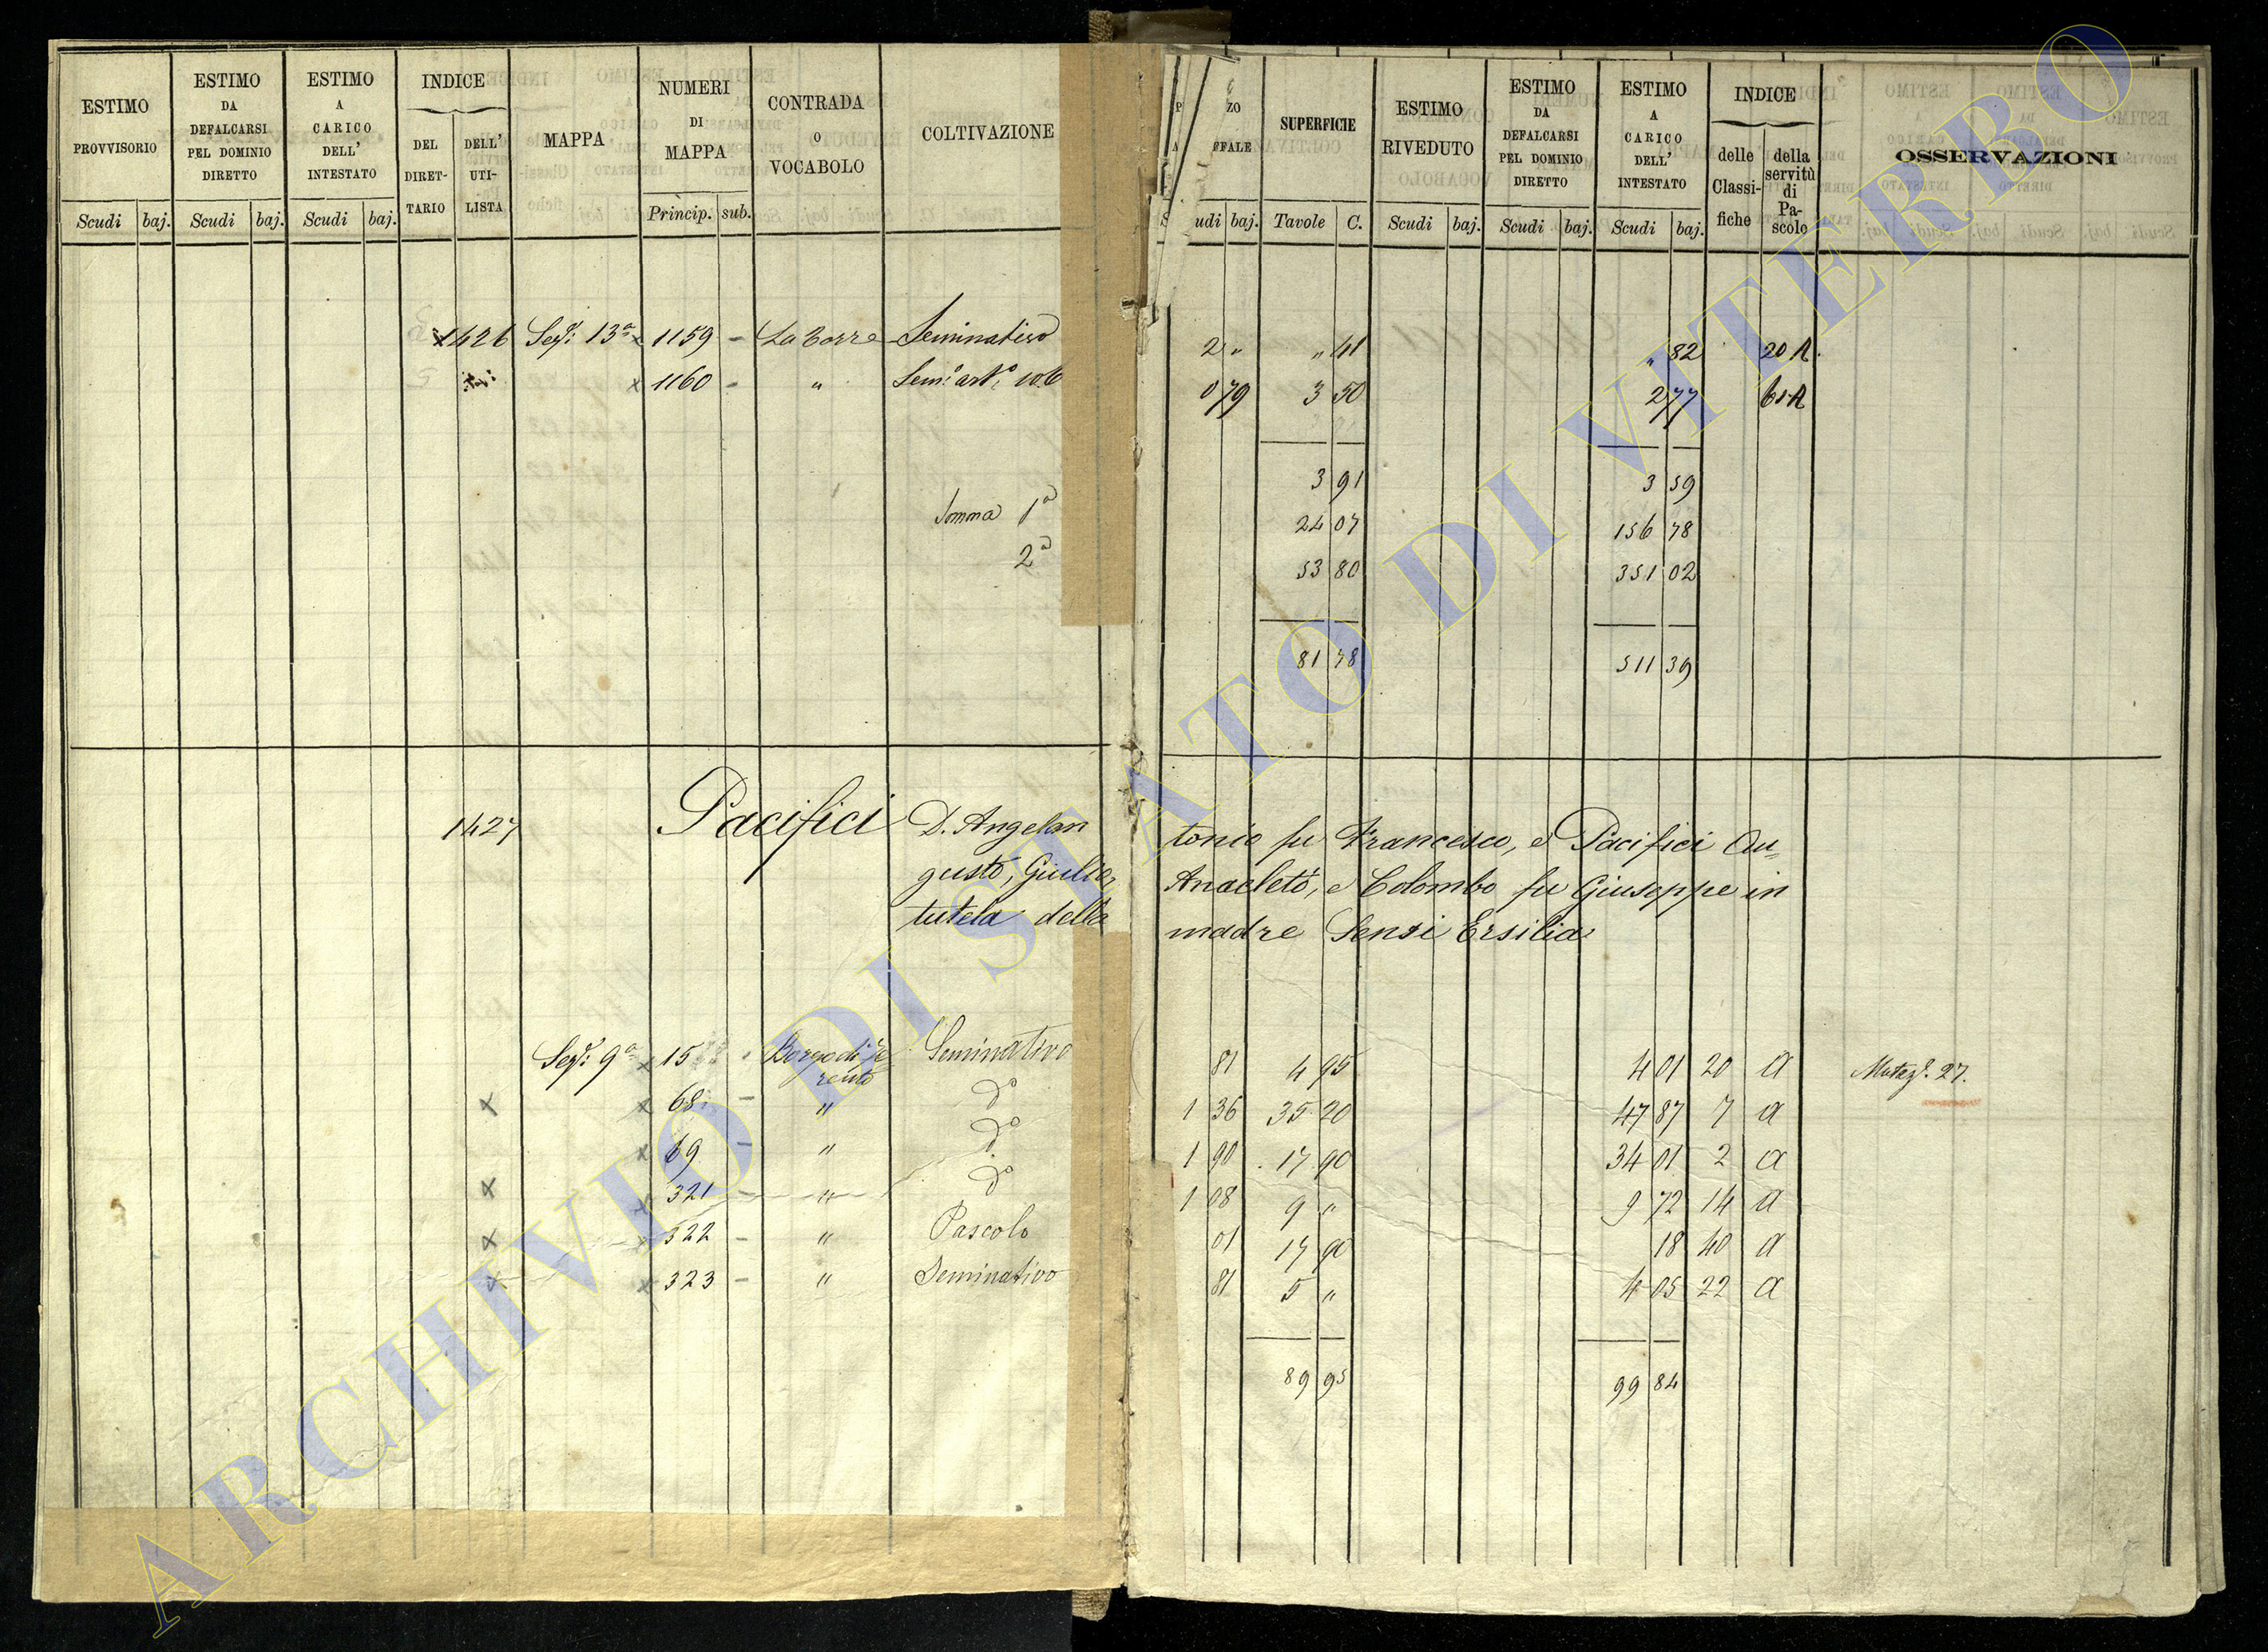 ESTIMO PROVVISORIO | ESTIMO DA DEFALCARSI PEL DOMINIO DIRETTO | ESTIMO A CARICO DELL' INTESTATO | INDICE | MAPPA | NUMERI DI MAPPA | CONTRADA O VOCABOLO | COLTIVAZIONE | ZO | SUPERFICIE | ESTIMO RIVEDUTO | ESTIMO DA DEFALCARSI PEL DOMINIO DIRETTO | ESTIMO A CARICO DELL' INTESTATO | INDICE | OSSERVAZIONI
DEL DIRET-TARIO | DELL' UTI-LISTA | delle Classi-fiche | della servitù di Pa-scolo
Scudi | baj. | Scudi | baj. | Scudi | baj. | Princip. | sub. | udi | baj. | Tavole | C. | Scudi | baj. | Scudi | baj. | Scudi | baj.
1426 Sez: 13a x 1159 - La Torre Seminativo 2 " " 41 " 82 20 A
x 1160 - " 0 79 3 50 2 77
3 91 3 59
Somma 1a 24 07 156 78
2a 53 80 351 02
81 78 511 39
1427 Pacifici D. Angelan tonio fu Francesco, e Pacifici Au=
gusto, Giulio, Anacleto, e Colombo fu Giuseppe in
tutela della madre Sensi Ersilia
Sez: 9a x 15 Borgo di Fe= Seminativo 81 4 95 4 01 20 a Mutaz. 27.
rento
x x 68 - " do 1 36 35 20 47 87 7 a
x 69 - " do 1 90 17 90 34 01 2 a
x x 321 - " do 1 08 9 " 9 72 14 a
x x 322 - " Pascolo 01 17 90 18 40 a
x x 323 - " Seminativo 81 5 " 4 05 22 a
89 95 99 84
ARCHIVIO DI STATO DI VITERBO